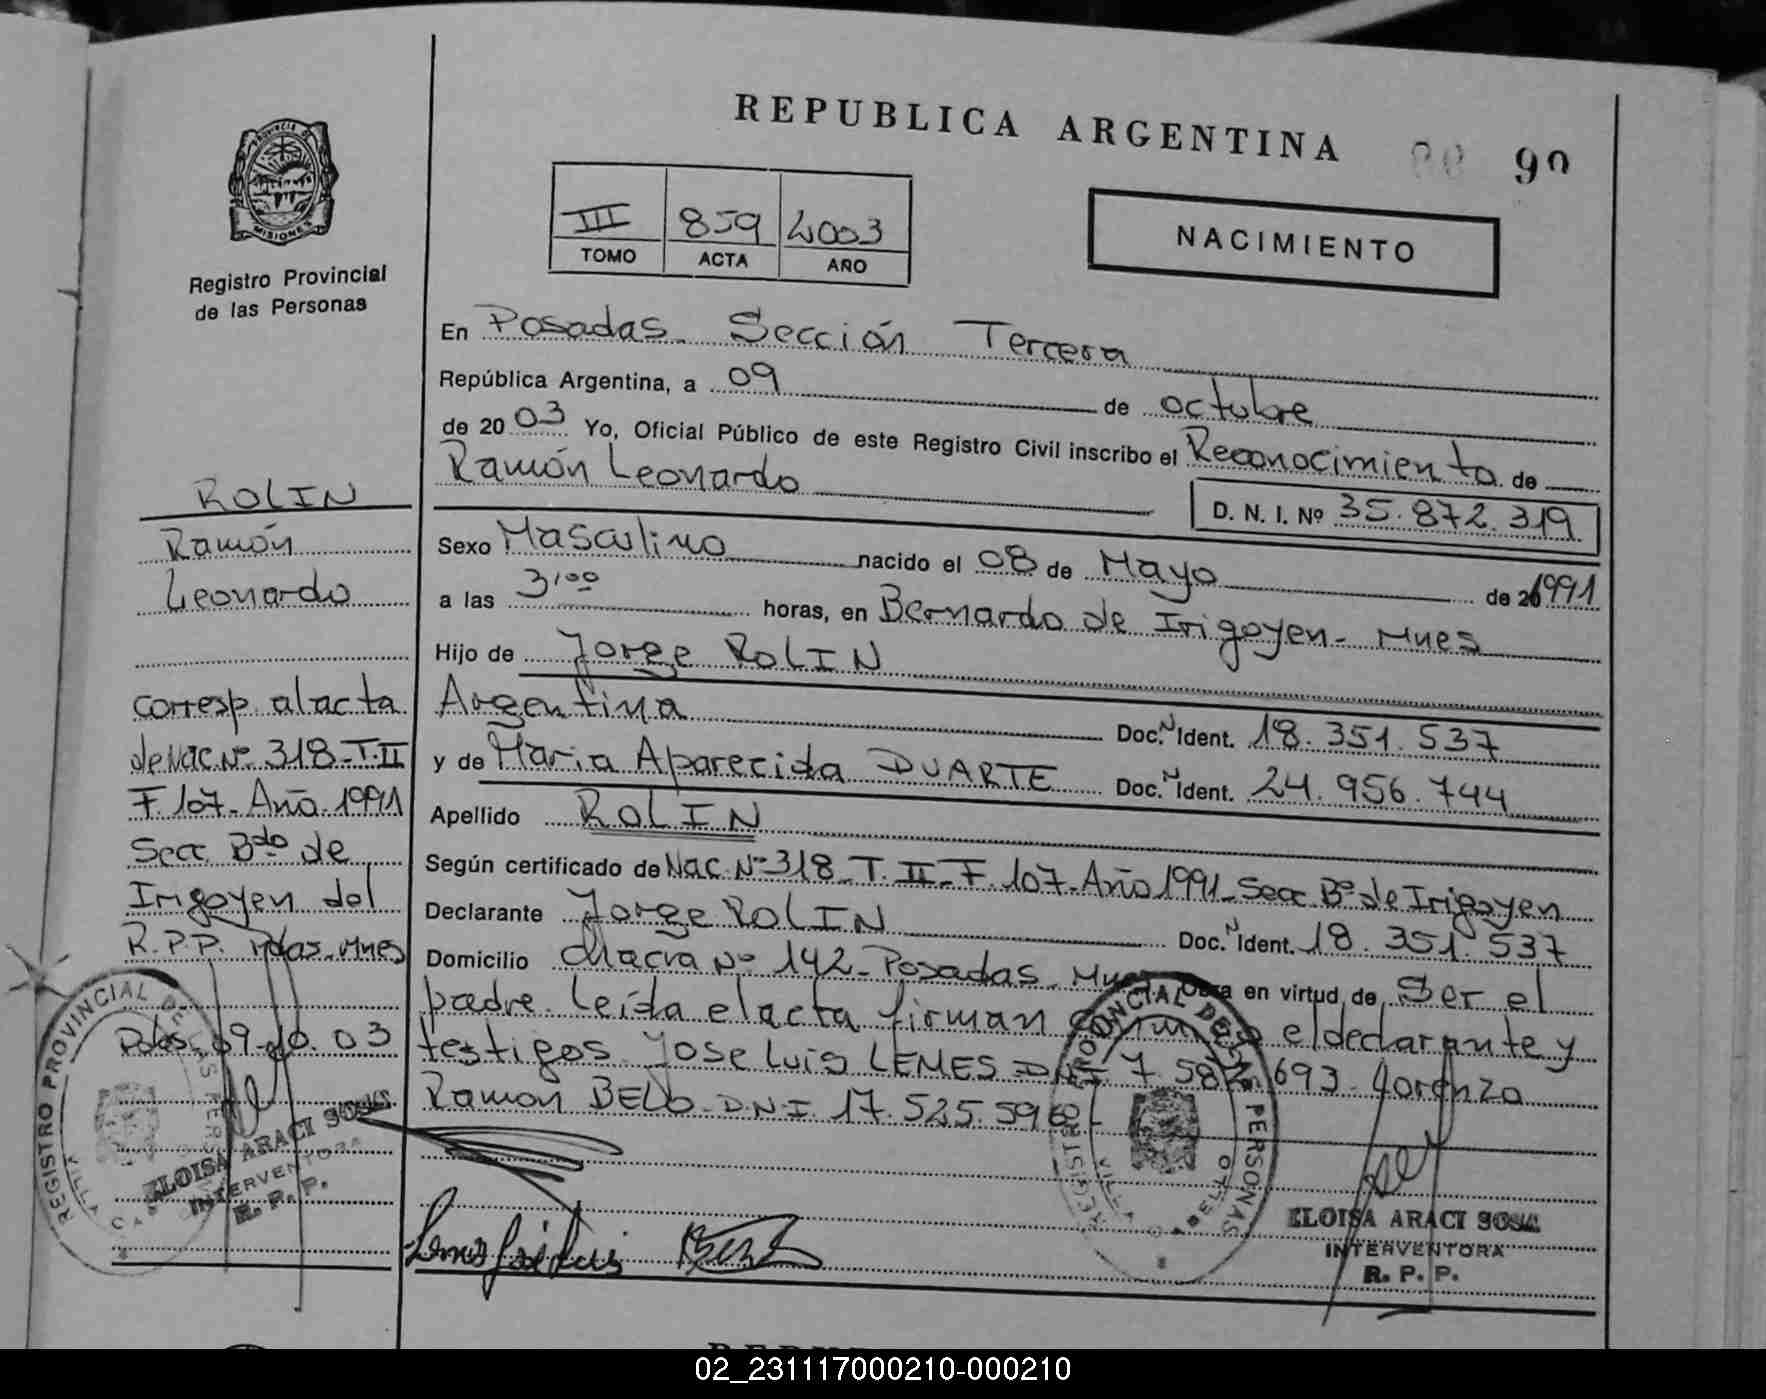 REPUBLICA ARGENTINA
00 90
PROVINCIA DE
MISIONES
Registro Provincial
de las Personas
III 859 2003
TOMO ACTA AÑO
NACIMIENTO
En Posadas. Sección Tercera
República Argentina, a 09 de octubre
de 2003 Yo, Oficial Público de este Registro Civil inscribo el Reconocimiento de
Ramón Leonardo
D. N. I. Nº 35.872.319
Sexo Masculino nacido el 08 de Mayo de 1991
a las 3,00 horas, en Bernardo de Irigoyen - Mnes
Hijo de Jorge ROLIN
Argentina Doc. N Ident. 18.351.537
y de Maria Aparecida DUARTE Doc. N Ident. 24.956.744
Apellido ROLIN
Según certificado de Nac. Nº 318 - T. II - F. 107 - Año 1991 - Secc Bº de Irigoyen
Declarante Jorge ROLIN Doc. N Ident. 18.351.537
Domicilio Chacra Nº 142 - Posadas - en virtud de Ser el
padre. Leída el acta firman el declarante y
testigos Jose Luis LEMES DNI 7.582.693 - Lorenzo
Ramon BELO - D.N.I. 17.525.596
ROLIN
Ramón
Leonardo
Corresp. al acta
de Nac Nº 318 - T. II
F. 107 - Año 1991
Secc. Bdo de
Irigoyen del
R.P.P. Pdas. Mnes
Pdas, 09-10-03
REGISTRO PROVINCIAL DE LAS PERSONAS
ELOISA ARACI SOSA
INTERVENTORA
R. P. P.
Lemes José Luis
REGISTRO PROVINCIAL DE LAS PERSONAS
ELOISA ARACI SOSA
INTERVENTORA
R. P. P.
02_231117000210-000210